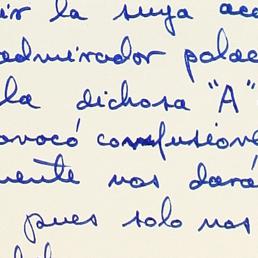 ir la suya ace
admirador palae
la dichosa "A"
ovocó confusione
mente nos dará
pues solo nos